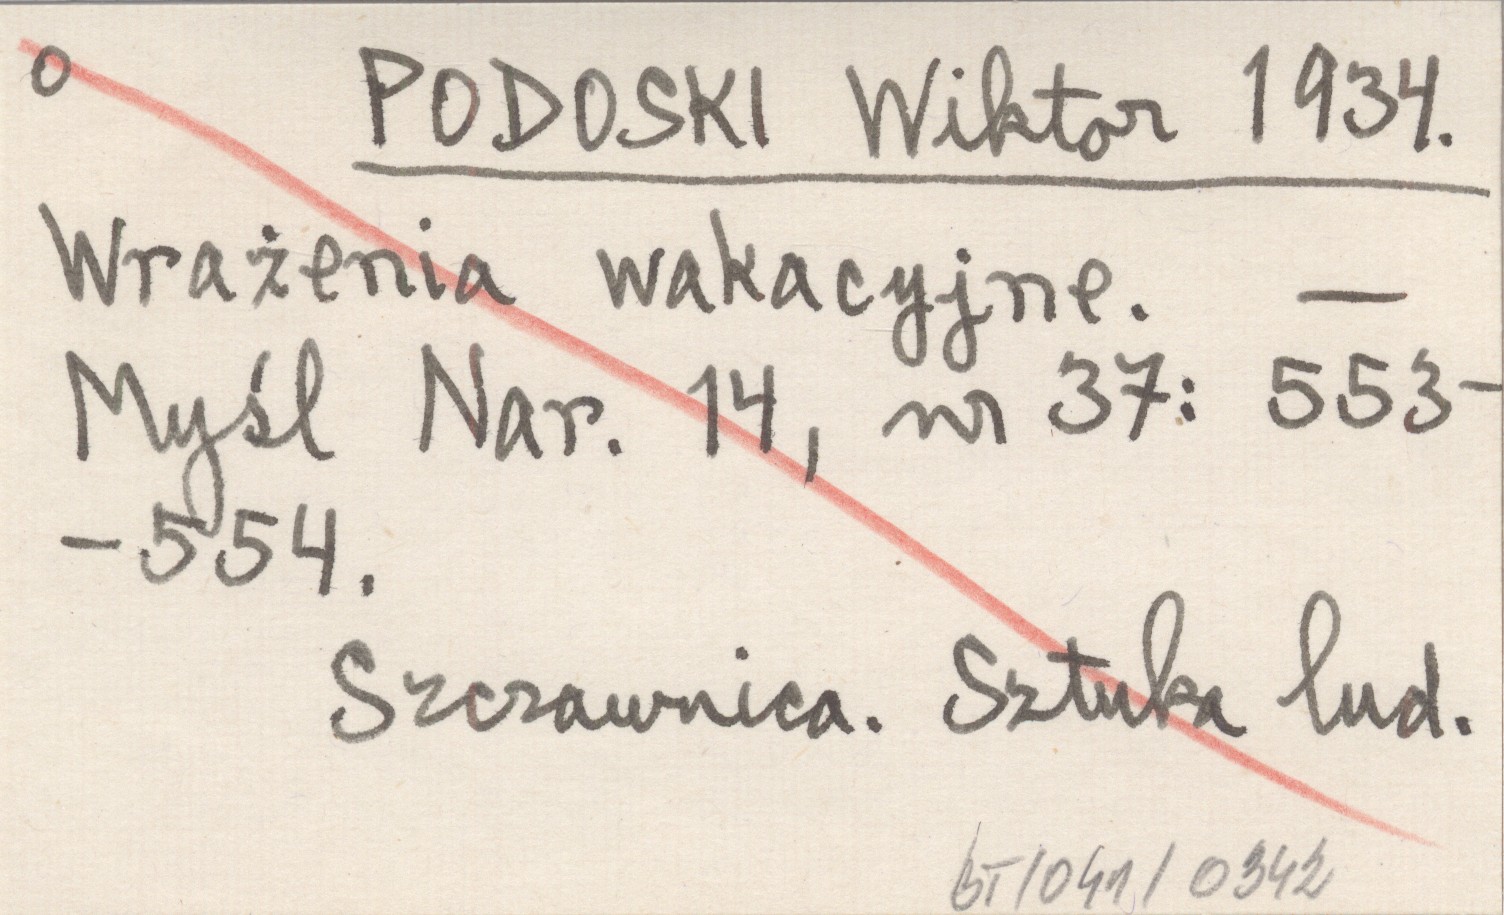 o PODOSKI Wiktor 1934.
Wrażenia wakacyjne. —
Myśl Nar. 14, nr 37: 553-
-554.
Szczawnica. Sztuka lud.
BT/041/0342